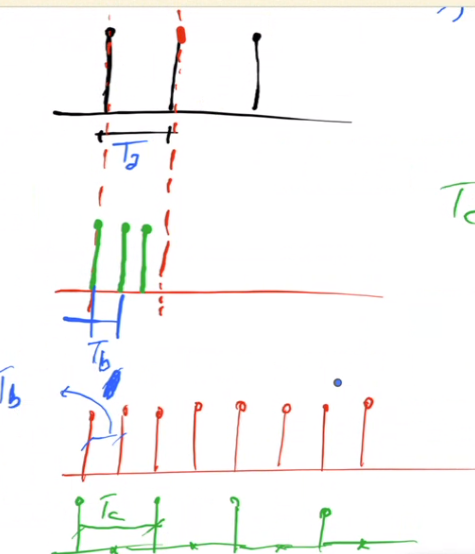 Ta
Tc
Tb
Tb
Tc